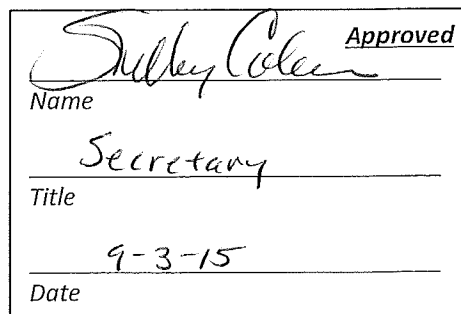 Approved
Shelley
Name
Secretary
Title
9-3-15
Date